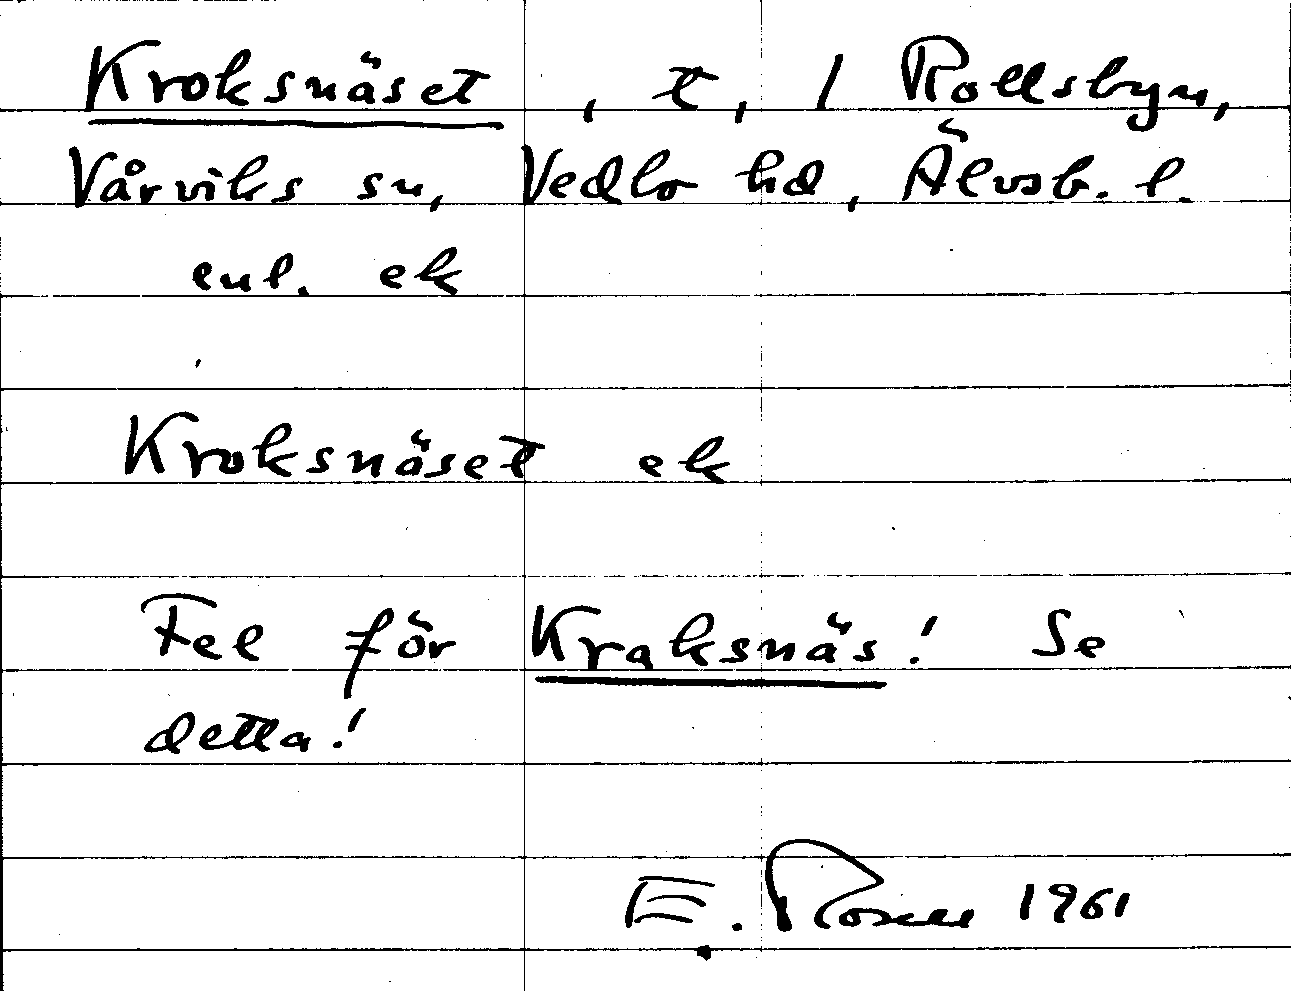 Kroksnäset, t, / Rollsbyn,
Vårviks sn, Vedbo hd, Älvsb. l.
enl. ek
Kroksnäset ek
Fel för Kraksnäs! Se
detta!
E. Rosell 1961